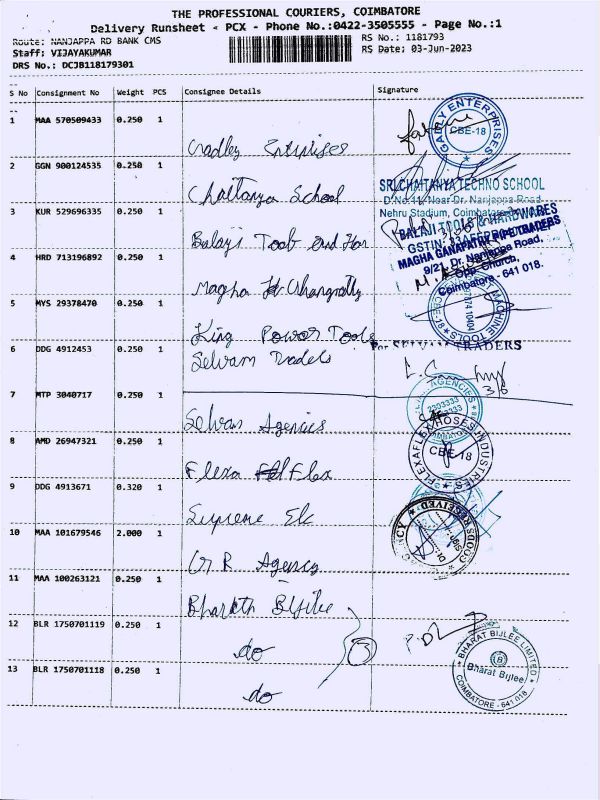 THE PROFESSIONAL COURIERS, COIMBATORE
Delivery Runsheet - PCX - Phone No.:0422-3505555 - Page No.:1
Route: NANJAPPA RD BANK CMS
RS No.: 1181793
Staff: VIJAYAKUMAR
RS Date: 03-Jun-2023
DRS No.: DCJB118179301
S No Consignment No Weight PCS Consignee Details Signature
1 MAA 570509433 0.250 1
CBE-18
2 GGN 900124535 0.250 1
Chaitanya School
SRI CHAITANYA TECHNO SCHOOL
D.No.11, Near Dr. Nanjappa Road
Nehru Stadium, Coimbatore
3 KUR 529696335 0.250 1
Balaji Tools and Har
BALAJI TOOLS & HARDWARES
4 HRD 713196892 0.250 1
Magha
MAGHA GANAPATHY TRADERS
9/21, Dr. Nanjappa Road,
Opp. Church,
Coimbatore - 641 018.
5 MYS 29378470 0.250 1
King Power Tools
MACHINE TOOLS
CBE-18
6 DDG 4912453 0.250 1
Selvam Traders
For SELVAM TRADERS
7 MTP 3040717 0.250 1
Selvam Agencies
AGENCIES
8 AMD 26947321 0.250 1
Flexa Flex
FLEXAFLEX HOSES INDUSTRIES
CBE-18
9 DDG 4913671 0.320 1
Supreme Elc
10 MAA 101679546 2.000 1
G R Agency
GOODS RECEIVED
11 MAA 100263121 0.250 1
Bharath Bijilee
12 BLR 1750701119 0.250 1
do
3
13 BLR 1750701118 0.250 1
do
BHARAT BIJLEE LIMITED
Bharat Bijlee
COIMBATORE - 641 018